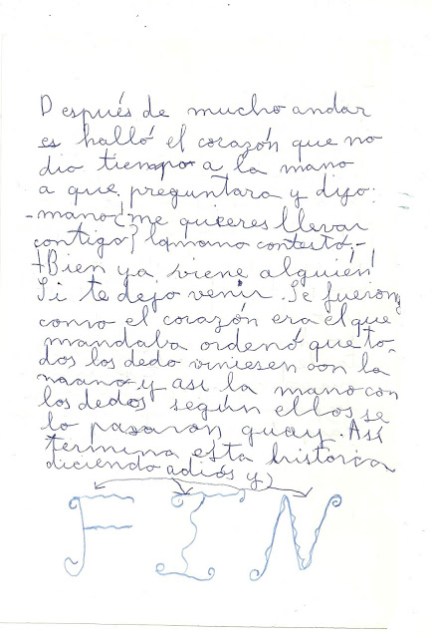 Después de mucho andar
es halló el corazón que no
dio tiempo a la mano
a que preguntara y dijo:
-mano ¿me quieres llevar
contigo? la mano contestó:-
¡Bien ya viene alguién!
Si te dejo venir. Se fueron
como el corazón era el que
mandaba ordenó que to-
dos los dedo viniesen con la
mano y así la mano con
los dedos según ellos se
lo pasaron guay. Así
termina esta historia
diciendo adiós y
FIN